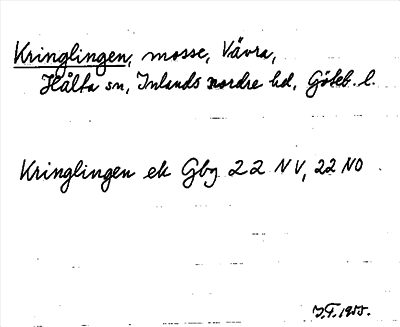 Kringlingen, mosse, Vävra,
Hålta sn, Inlands nordre hd, Göteb. l.
Kringlingen ek Gbg 22 NV, 22 NO
J.F. 1955.